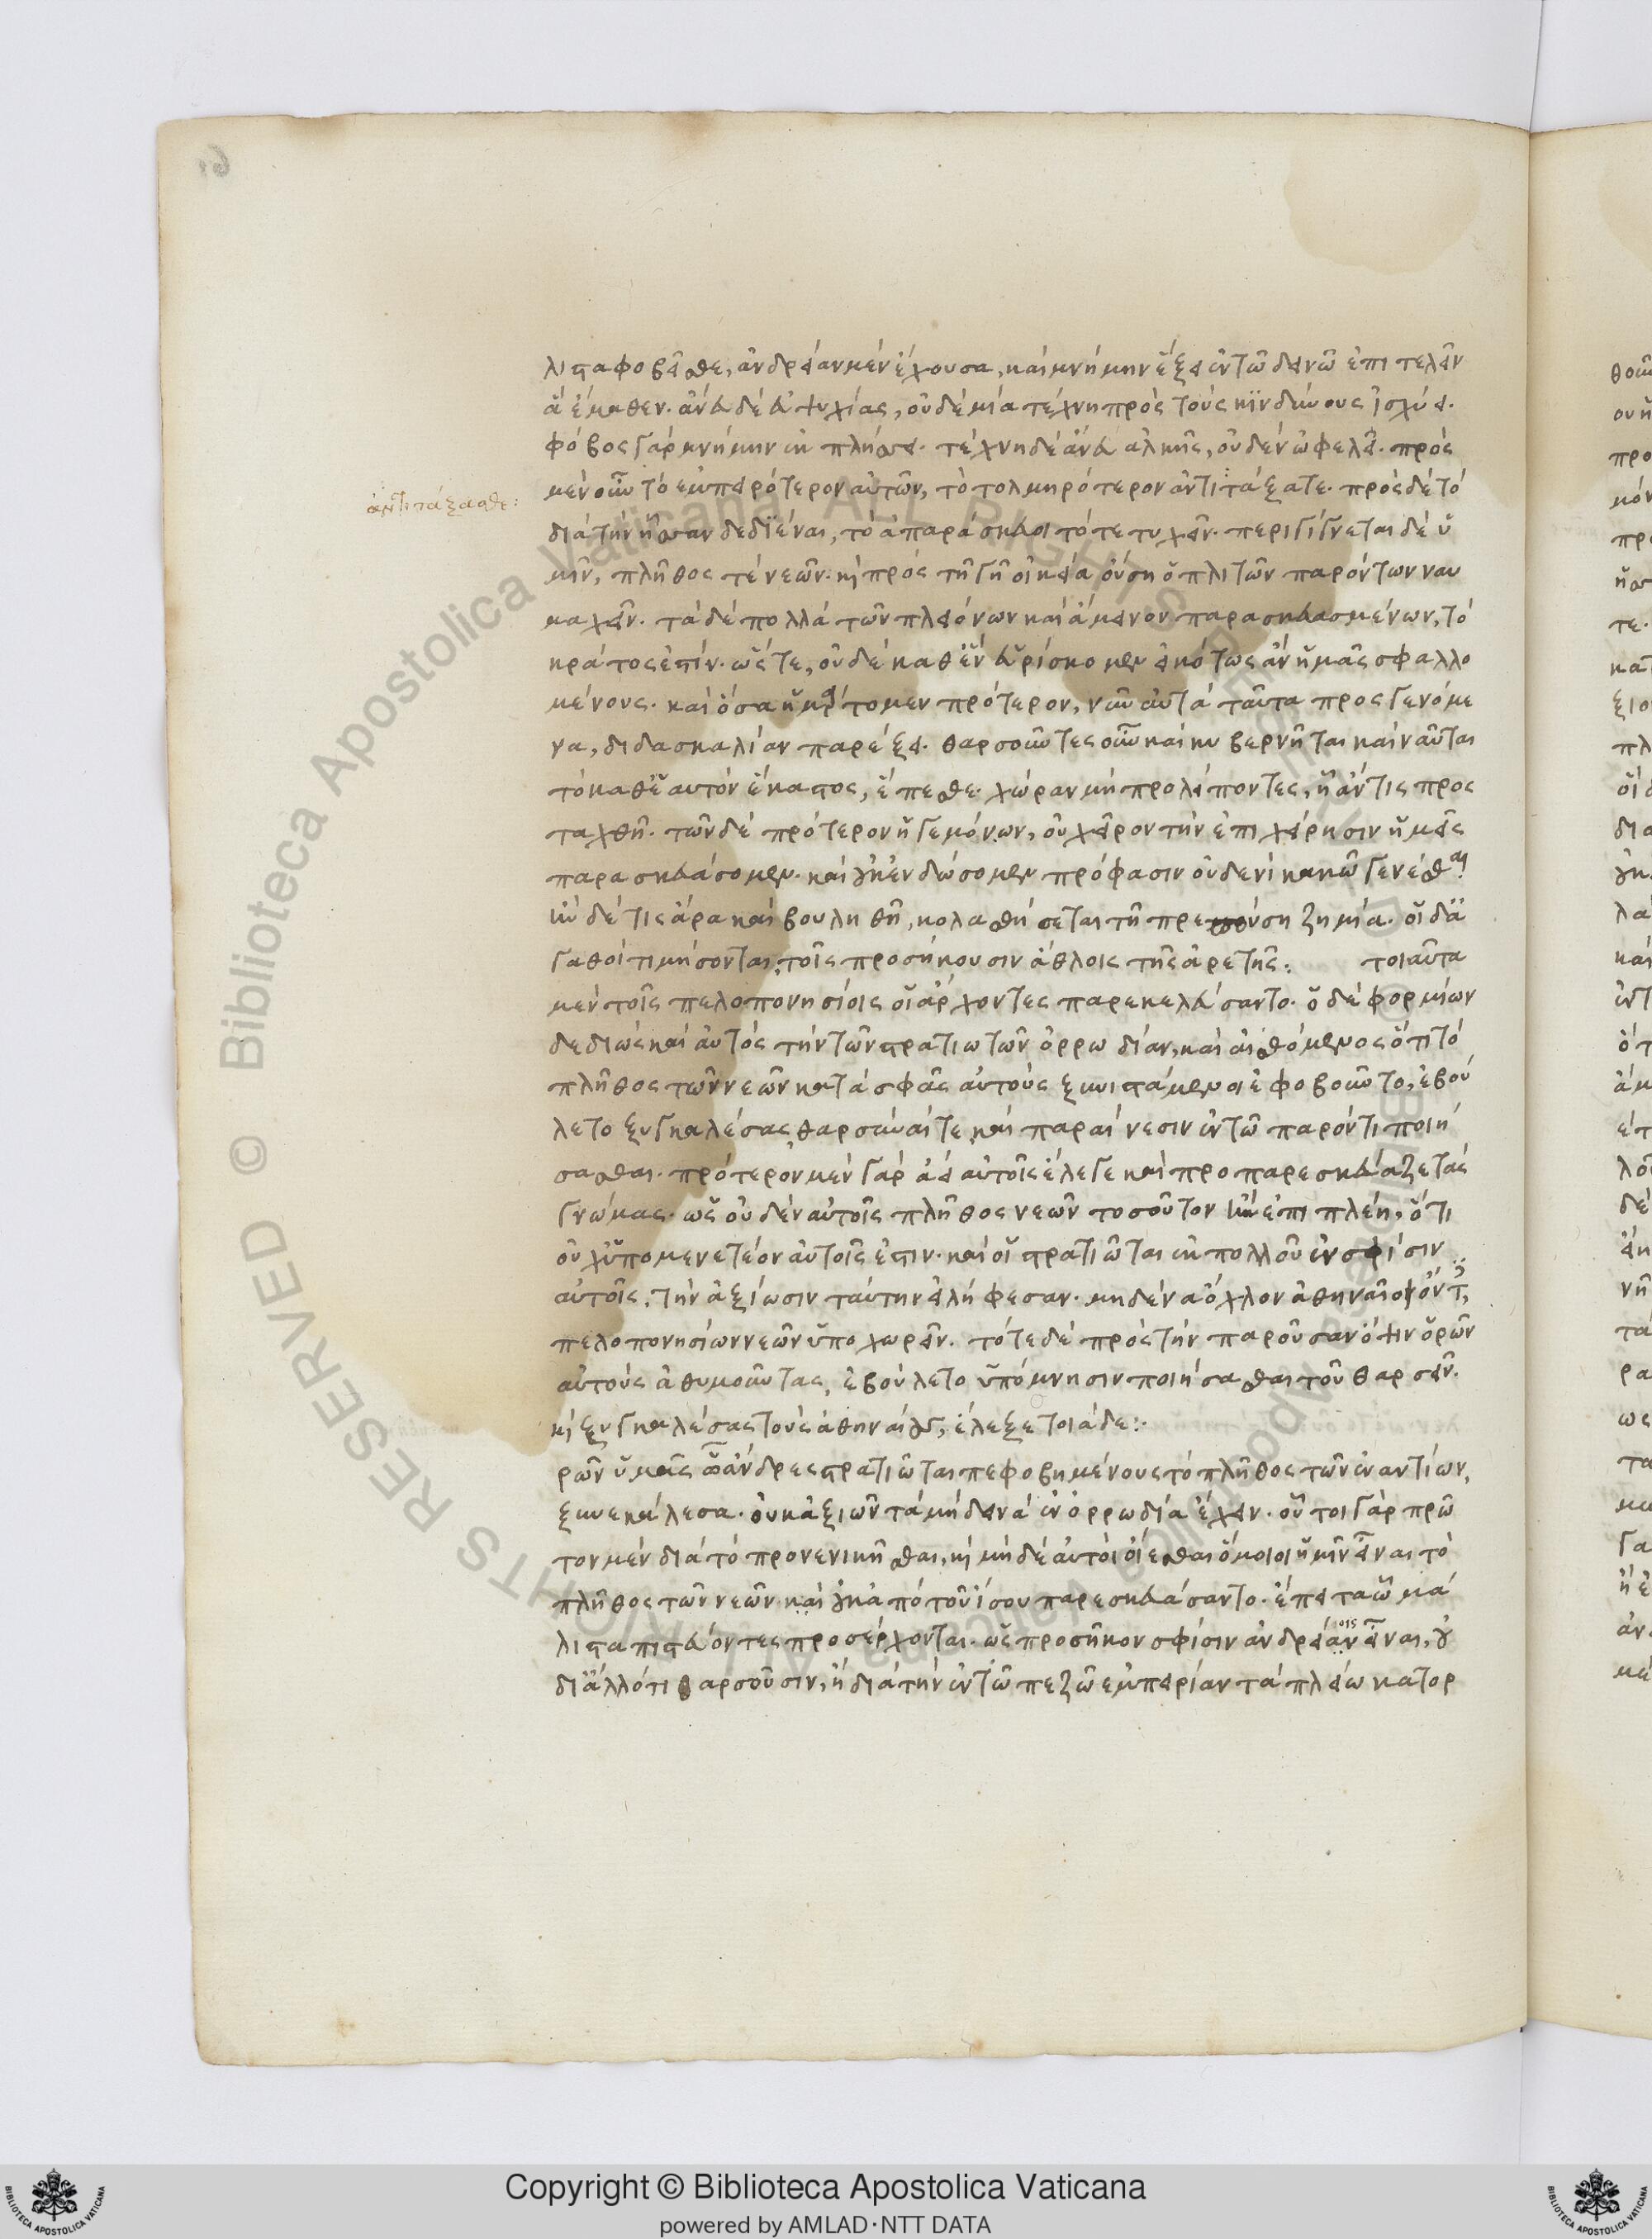 λιστα φοβεῖσθε, ἀνδρείαν μὲν ἔχουσα, καὶ μνήμην ἕξει ἐν τῶ δεινῶ ἐπιτελεῖν
ἃ ἔμαθεν. ἄνευ δὲ εὐψυχίας, οὐδεμία τέχνη πρὸς τοὺς κινδύνους ἰσχύει.
φόβος γὰρ μνήμην ἐκπλήσσει. τέχνη δὲ ἄνευ ἀλκῆς, οὐδὲν ὠφελεῖ. πρὸς
μὲν οὖν τὸ ἐμπειρότερον αὐτῶν, τὸ τολμηρότερον ἀντιτάξατε. πρὸς δὲ τὸ
ἀντιτάξασθε:
διὰ τὴν ἧσσαν δεδϊέναι, τὸ ἀπαράσκευοι τότε τυχεῖν. περιγίγνεται δὲ ὑ
μῖν, πλῆθος τὲ νεῶν. κὶ πρὸς τῆ γῆ οἰκεία οὔση ὁπλιτῶν παρόντων ναυ
μαχεῖν. τὰ δὲ πολλὰ τῶν πλειόνων καὶ ἄμεινον παρασκευασμένων, τὸ
κράτος ἐστίν. ὥστε, οὐδὲ καθ' ἓν εὑρίσκομεν εἰκότως ἂν ἡμᾶς σφαλλο
μένους. καὶ ὅσα ἡμάρτομεν πρότερον, νῦν αὐτὰ ταῦτα προσγενόμε
να, διδασκαλίαν παρέξει. θαρσοῦντες οὖν καὶ κυβερνῆται καὶ ναῦται
τὸ καθ' ἑαυτὸν ἕκαστος, ἕπεσθε. χώραν μὴ προλείποντες, ἧ ἄν τις προς
ταχθῆ. τῶν δὲ πρότερον ἡγεμόνων, οὐ χεῖρον τὴν ἐπιχείρησιν ἡμεῖς
παρασκευάσομεν. καὶ οὐκ ἐνδώσομεν πρόφασιν οὐδενὶ κακῶ γενέσθαι
ἢν δέ τις ἄρα καὶ βουληθῆ, κολασθήσεται τῆ πρεπούση ζημία. οἱ δ' ἀ
γαθοὶ τιμήσονται, τοῖς προσήκουσιν ἄθλοις τῆς ἀρετῆς: τοιαῦτα
μὲν τοῖς πελοπονησίοις οἱ ἄρχοντες παρεκελεύσαντο. ὁ δὲ φορμίων
δεδιὼς καὶ αὐτὸς τὴν τῶν στρατιωτῶν ὀρρωδίαν, καὶ αἰσθόμενος ὅτι τὸ
πλῆθος τῶν νεῶν κατὰ σφᾶς αὐτοὺς ξυνιστάμενοι ἐφοβοῦντο, ἐβού
λετο ξυγκαλέσας θαρσῦναί τε καὶ παραίνεσιν ἐν τῶ παρόντι ποιή
σασθαι. πρότερον μὲν γὰρ ἀεὶ αὐτοῖς ἔλεγε καὶ προπαρεσκεύαζε τὰς
γνώμας. ὡς οὐδὲν αὐτοῖς πλῆθος νεῶν τοσοῦτον ἢν ἐπιπλέη, ὅτι
οὐχ ὑπομενετέον αὐτοῖς ἐστιν. καὶ οἱ στρατιῶται ἐκ πολλοῦ ἐν σφίσιν
αὐτοῖς, τὴν ἀξίωσιν ταύτην εἰλήφεσαν. μηδένα ὄχλον ἀθηναῖοι ὄντες
πελοπονησίων νεῶν ὑποχωρεῖν. τότε δὲ πρὸς τὴν παροῦσαν ὄψιν ὁρῶν
αὐτοὺς ἀθυμοῦντας, ἐβούλετο ὑπόμνησιν ποιήσασθαι τοῦ θαρσεῖν.
κὶ ξυγκαλέσας τοὺς ἀθηναίους, ἔλεξε τοιάδε:
ρῶν ὑμᾶς ὦ ἄνδρες στρατιῶται πεφοβημένους τὸ πλῆθος τῶν ἐναντίων,
ξυνεκάλεσα. οὐκ ἀξιῶν τὰ μὴ δεινὰ ἐν ὀρρωδία ἔχειν. οὗτοι γὰρ πρῶ
τον μὲν διὰ τὸ προνενικῆσθαι, κὶ μηδὲ αὐτοὶ οἴεσθαι ὅμοιοι ἡμῖν εἶναι τὸ
πλῆθος τῶν νεῶν καὶ οὐκ ἀπὸ τοῦ ἴσου παρεσκευάσαντο. ἔπειτα ᾧ μά
λιστα πιστεύοντες προσέρχονται. ὡς προσῆκον σφίσιν ἀνδρείαν οις εἶναι, οὐ
δι' ἄλλό τι θαρσοῦσιν, ἢ διὰ τὴν ἐν τῶ πεζῶ ἐμπειρίαν τὰ πλείω κατορ